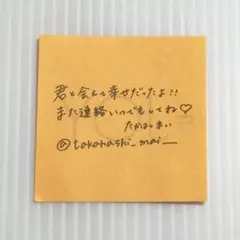 君と会えて幸せだったよ!!
また連絡いつでもしてね♡
たかはしまい
@takahashi_mai_